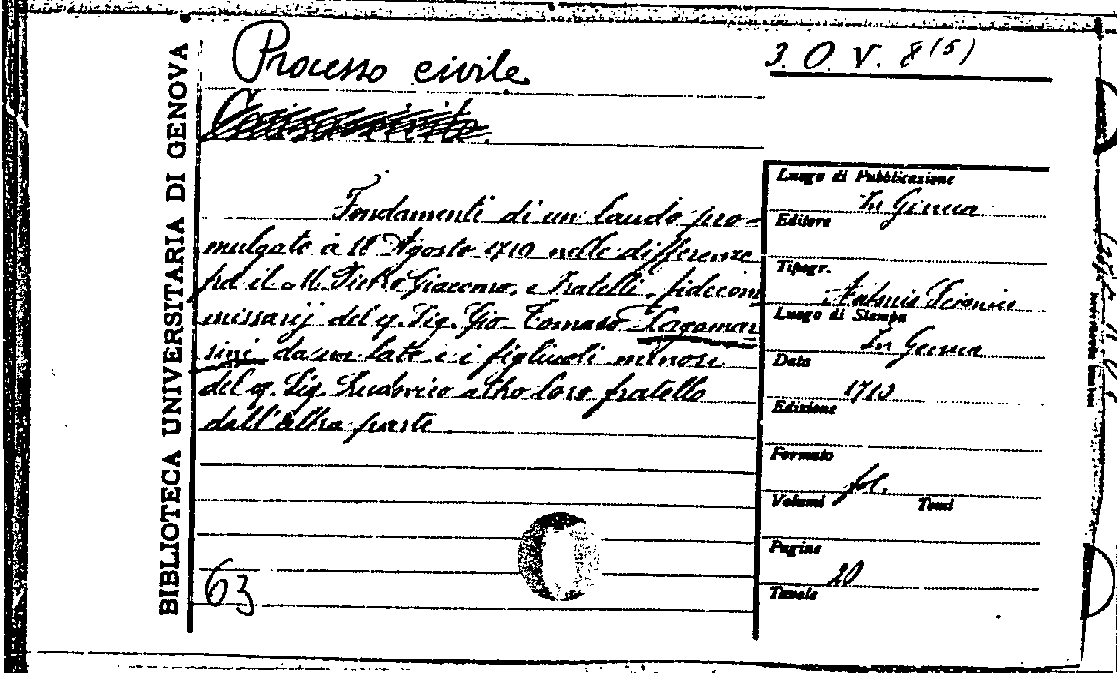 BIBLIOTECA UNIVERSITARIA DI GENOVA
Processo civile
3. O. V. 8 (5)
Fondamenti di un laudo pro=
mulgato à 18 Agosto 1710 nelle differenze
frà il M. Pietro Giacomo, e Fratelli, fidecom
missarij del q. Sig. Gio Tomaso Lagomar
sini da un lato e i figliuoli minori
del q. Sig. Ludovico altro loro fratello
dall'altra parte
63
Luogo di Pubblicazione
In Genua
Editore
Tipogr.
Antonio
Luogo di Stampa
In Genua
Data
1713
Edizione
Formato
fol.
Volumi Tomi
Pagine
20
Tavole